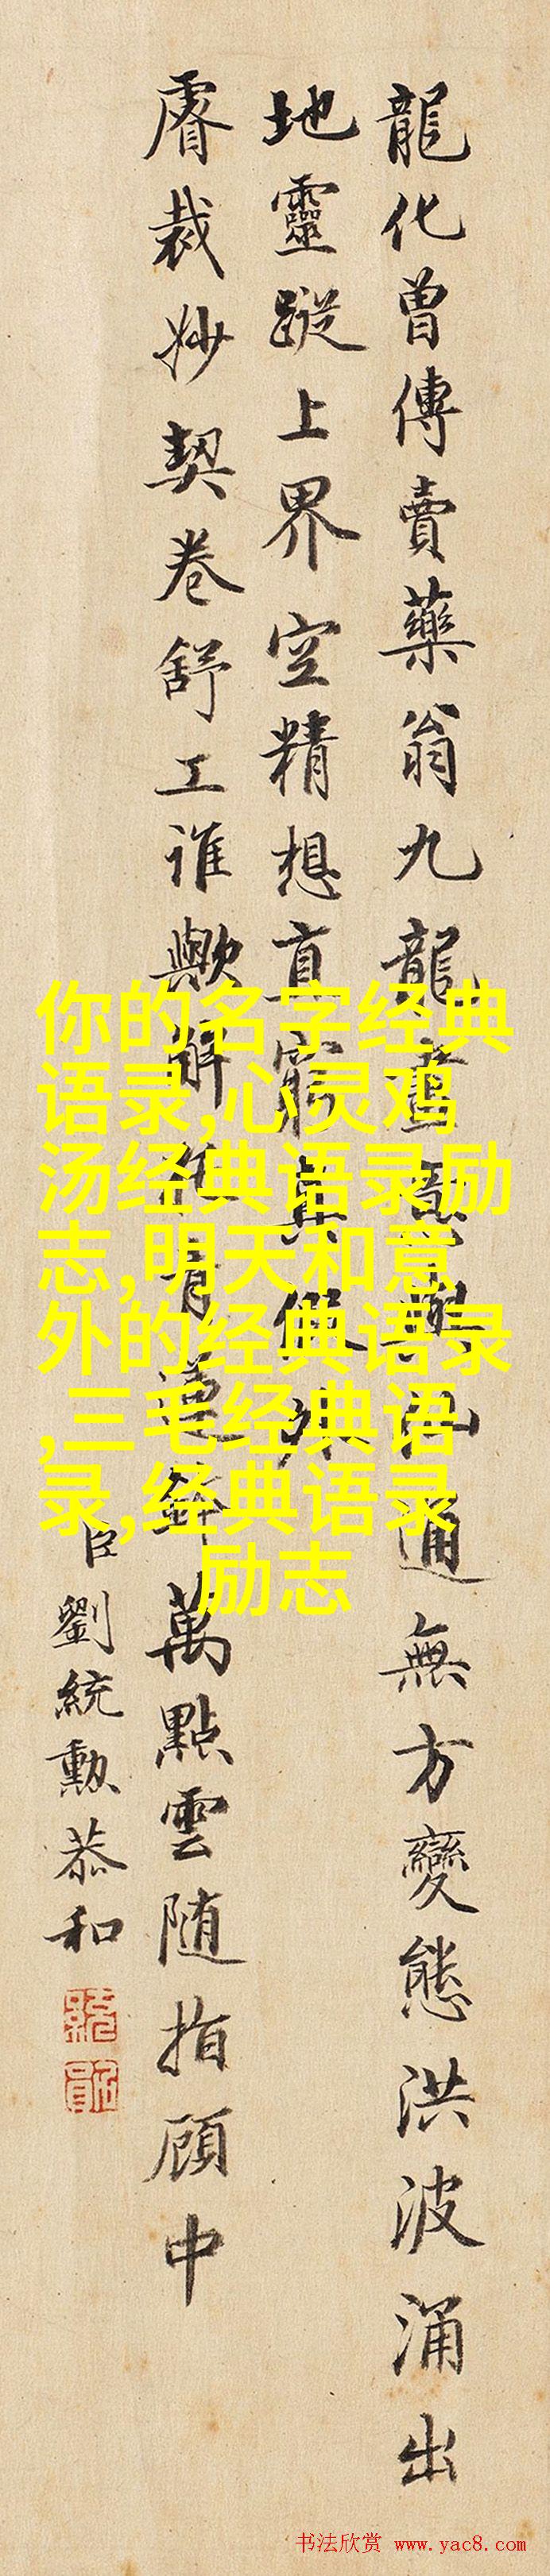 龍化曾傳賣藥翁九龍通無方變態洪波涌出
地靈蹤上界空精想直窮真假外
睿裁妙契卷舒工誰歟解青蓮鉢萬點雲隨指顧中
臣劉統勳恭和
你的名字经典
语录,心灵鸡
汤经典语录励
志,明天和意
外的经典语录
,三毛经典语
录,经典语录
励志
书法欣赏 www.yac8.com